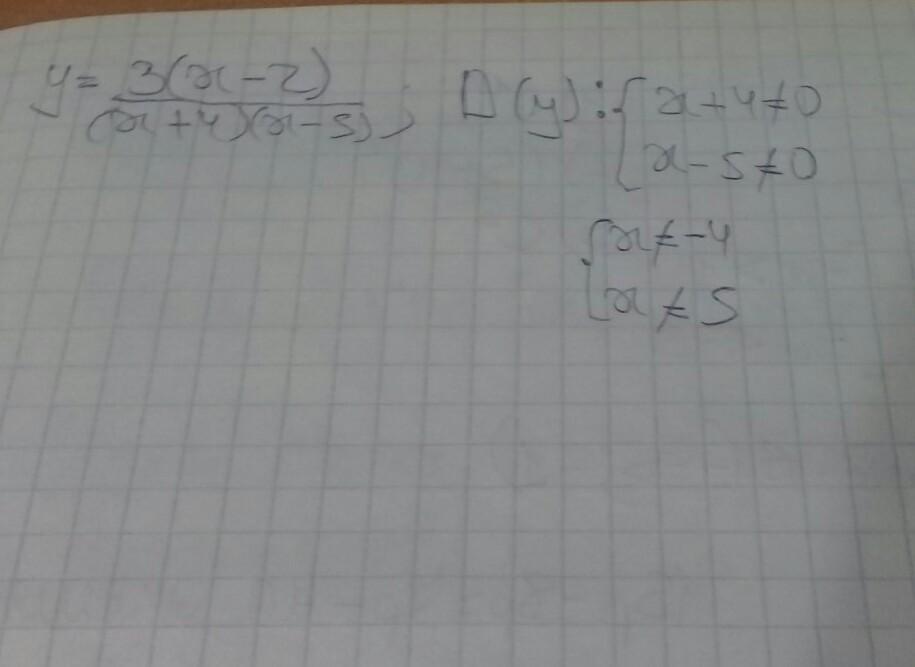 y = 3(x-2) / (x+4)(x-5) ; D(y): { x+4≠0
x-5≠0
{ x≠-4
x≠5